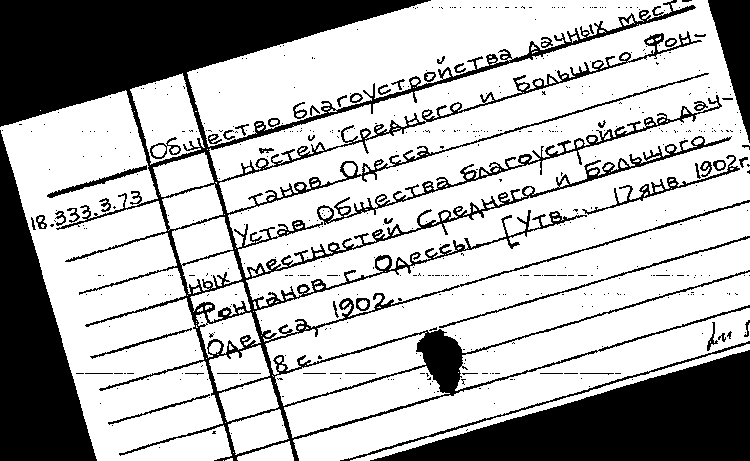 Общество благоустройства дачных мест-
ностей Среднего и Большого Фон-
танов. Одесса.
18.333.3.73
Устав Общества благоустройства дач-
ных местностей Среднего и Большого
Фонтанов г. Одессы. [Утв. ... 17 янв. 1902г.
Одесса, 1902.
8 с.